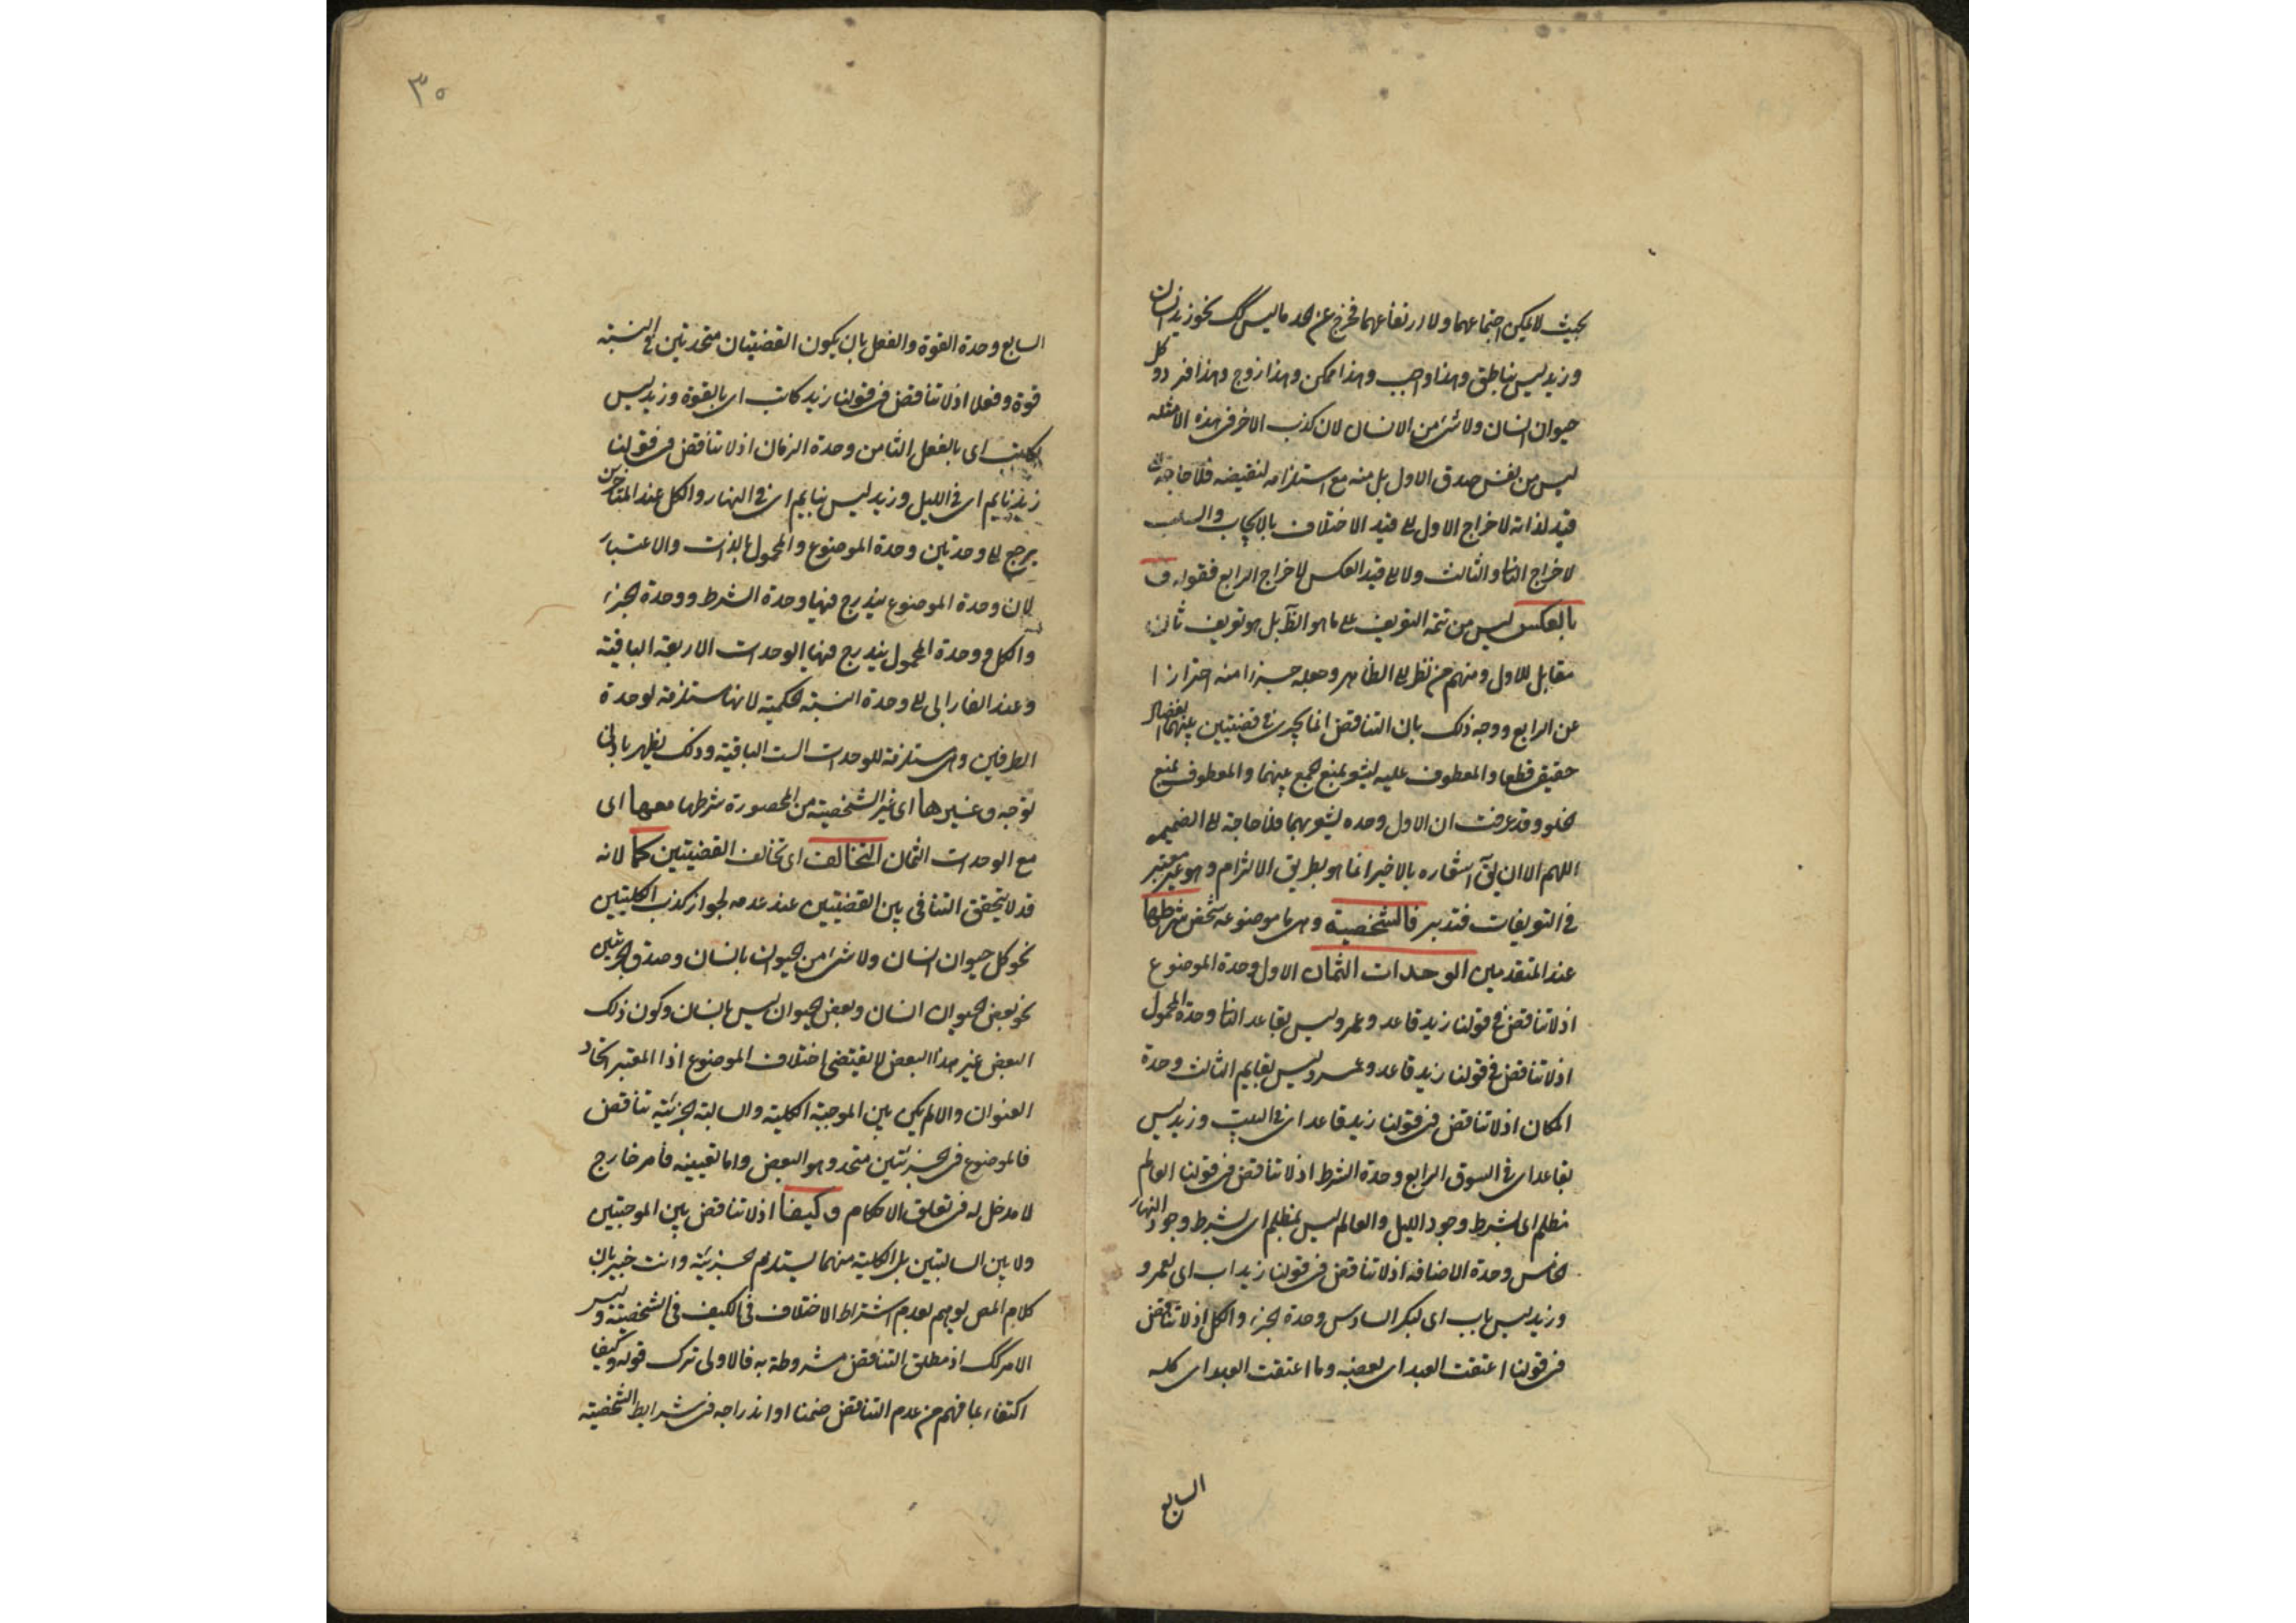 بحيث لا يمكن اجتماعهما ولا ارتفاعهما فخرج عن الحد ما ليس كك نحو زيد انسان
وزيد ليس بناطق وهذا واجب وهذا ممكن وهذا زوج وهذا فرد وكل
حيوان انسان ولا شئ من الانسان لان كذب الاخر فى هذه الامثله
ليس من نفس صدق الاول بل منه مع استلزامه لنقيضه فلا حاجة الى
قيد لذاته لاخراج الاول لا الى قيد الاختلاف بالايجاب والسلب
لاخراج الثانى والثالث ولا الى قيد العكس لاخراج الرابع فقوله و
بالعكس ليس من تتمة التعريف على ما هو الظ بل هو تعريف ثان
مقابل للاول ومنهم من نظر الى الظاهر وجعله جزءا منه احترازا
عن الرابع ووجه ذلك بان التناقض انما يجرى فى قضيتين بينهما انفصال
حقيقى قطعا والمعطوف عليه يشعر بمنع الجمع بينهما والمعطوف بمنع
الخلو وقد عرفت ان الاول وحده يشعر بهما فلا حاجة الى الضميمه
اللهم الا ان يق اشعاره بالاخير انما هو بطريق الالتزام وهو غير معتبر
فى التعريفات فتدبر فالشخصية وهى ما موضوعه شخص شرطها
عند المتقدمين الوحدات الثمان الاول وحدة الموضوع
اذ لا تناقض فى قولنا زيد قاعد وعمرو ليس بقاعد الثانى وحدة المحمول
اذ لا تناقض فى قولنا زيد قاعد وعمرو ليس بقايم الثالث وحدة
المكان اذ لا تناقض فى قولنا زيد قاعد اى فى البيت وزيد ليس
بقاعد اى فى السوق الرابع وحدة الشرط اذ لا تناقض فى قولنا العالم
مظلم اى بشرط وجود الليل والعالم ليس بمظلم اى بشرط وجود النهار
الخامس وحدة الاضافة اذ لا تناقض فى قولنا زيد اب اى لعمرو
وزيد ليس باب اى لبكر السادس وحدة الجزء والكل اذ لا تناقض
فى قولنا اعتقت العبد اى بعضه وما اعتقت العبد اى كله
السابع
٣٠
السابع وحدة القوة والفعل بان يكون القضيتان متحدتين فى النسبة
قوة وفعلا اذ لا تناقض فى قولنا زيد كاتب اى بالقوة وزيد ليس
بكاتب اى بالفعل الثامن وحدة الزمان اذ لا تناقض فى قولنا
زيد نايم اى فى الليل وزيد ليس بنايم اى فى النهار والكل عند المتأخرين
يرجع الى وحدتين وحدة الموضوع والمحمول بالذات والاعتبار
لان وحدة الموضوع يندرج فيها وحدة الشرط ووحدة الجزء
والكل ووحدة المحمول يندرج فيها الوحدات الاربعة الباقية
وعند الفارابى الى وحدة النسبة الحكمية لانها مستلزمة لوحدة
الطرفين وهى مستلزمة للوحدات الست الباقية وذلك يظهر بادنى
توجه وغيرها اى غير الشخصية من المحصورة شرطها معها اى
مع الوحدات الثمان التخالف اى تخالف القضيتين كما لانه
قد لا يتحقق التنافى بين القضيتين عند عدمه لجواز كذب الكليتين
نحو كل حيوان انسان ولا شئ من الحيوان بانسان وصدق الجزئيتين
نحو بعض الحيوان انسان وبعض الحيوان ليس بانسان وكون ذلك
البعض غير هذا البعض لا يقتضى اختلاف الموضوع اذا المعتبر اتحاد
العنوان والا لم يكن بين الموجبة الكلية والسالبة الجزئية تناقض
فالموضوع فى الجزئيتين متحد وهو البعض واما تعيينه فامر خارج
لا مدخل له فى تعلق الاحكام وكيفا اذ لا تناقض بين الموجبتين
ولا بين السالبتين بل الكلية منهما يستلزم الجزئية وانت خبير بان
كلام المص يوهم بعدم اشتراط الاختلاف فى الكيف فى الشخصية وليس
الامر كك اذ مطلق التناقض مشروطة به فالاولى ترك قوله وكيفا
اكتفاء بما فهم من عدم التناقض ضمنا او اندراجه فى شرايط الشخصية